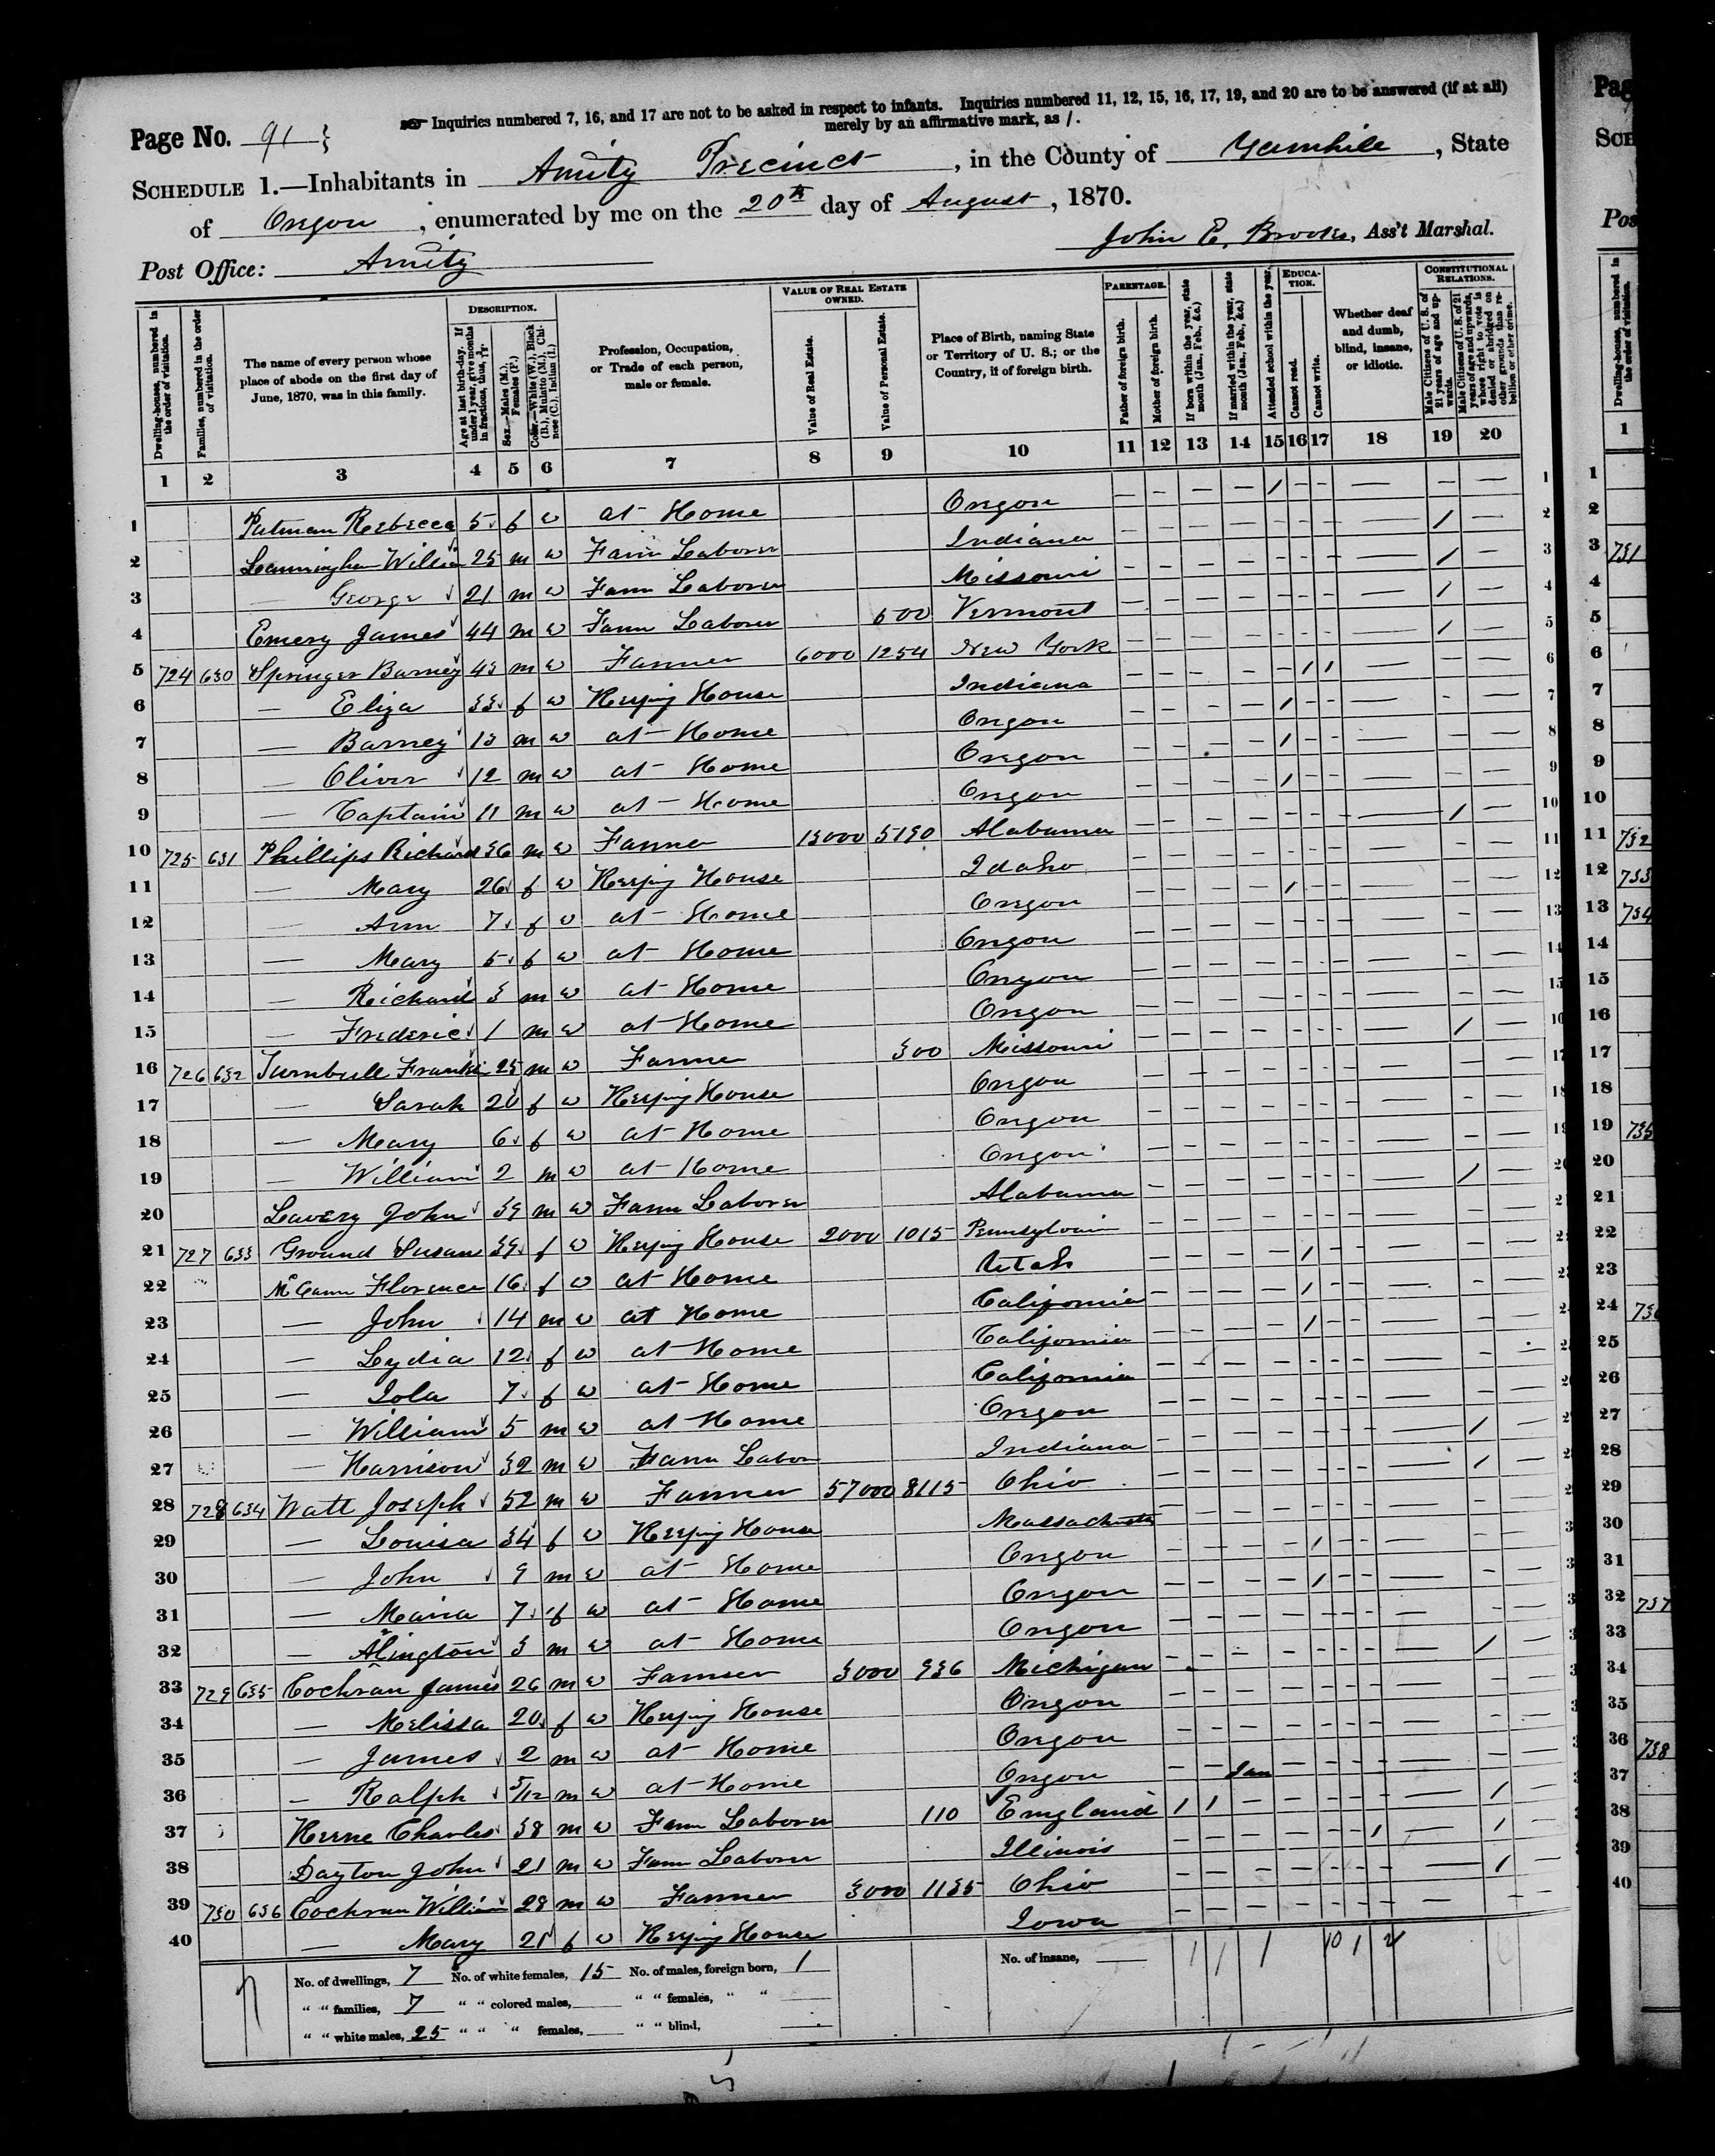 Inquiries numbered 7, 16, and 17 are not to be asked in respect to infants. Inquiries numbered 11, 12, 15, 16, 17, 19, and 20 are to be answered (if at all)
merely by an affirmative mark, as /.
Page No. 91
SCHEDULE 1.—Inhabitants in Amity Precinct, in the County of Yamhill, State
of Oregon, enumerated by me on the 20th day of August, 1870.
Post Office: Amity
John E. Brooks, Ass't Marshal.
Dwelling-houses, numbered in the order of visitation.
Families, numbered in the order of visitation.
The name of every person whose place of abode on the first day of June, 1870, was in this family.
DESCRIPTION.
Age at last birth-day. If under 1 year, give months in fractions, thus, 3/12.
Sex.—Males (M.), Females (F.)
Color.—White (W.), Black (B.), Mulatto (M.), Chinese (C.), Indian (I.)
Profession, Occupation, or Trade of each person, male or female.
VALUE OF REAL ESTATE OWNED.
Value of Real Estate.
Value of Personal Estate.
Place of Birth, naming State or Territory of U. S.; or the Country, if of foreign birth.
PARENTAGE.
Father of foreign birth.
Mother of foreign birth.
If born within the year, state month (Jan., Feb., &c.)
If married within the year, state month (Jan., Feb., &c.)
EDUCATION.
Attended school within the year.
Cannot read.
Cannot write.
Whether deaf and dumb, blind, insane, or idiotic.
CONSTITUTIONAL RELATIONS.
Male Citizens of U. S. of 21 years of age and upwards.
Male Citizens of U. S. of 21 years of age and upwards, whose right to vote is denied or abridged on other grounds than rebellion or other crime.
1 2 3 4 5 6 7 8 9 10 11 12 13 14 15 16 17 18 19 20
1 Putman Rebecca 5 f w at Home Oregon /
2 William 25 m w Farm Laborer Indiana /
3 — George 21 m w Farm Laborer Missouri /
4 Emery James 44 m w Farm Laborer 600 Vermont /
5 724 630 Springer Barney 43 m w Farmer 6000 1254 New York /
6 — Eliza 33 f w Keeping House Indiana / /
7 — Barney 13 m w at Home Oregon /
8 — Oliver 12 m w at Home Oregon /
9 — Captain 11 m w at Home Oregon /
10 725 631 Phillips Richard 36 m w Farmer 13000 5130 Alabama /
11 — Mary 26 f w Keeping House Idaho
12 — Ann 7 f w at Home Oregon /
13 — Mary 5 f w at Home Oregon
14 — Richard 3 m w at Home Oregon
15 — Frederic 1 m w at Home Oregon
16 726 632 Turnbull 25 m w Farmer 300 Missouri /
17 — Sarah 20 f w Keeping House Oregon
18 — Mary 6 f w at Home Oregon
19 — William 2 m w at Home Oregon
20 Lavery John 39 m w Farm Laborer Alabama /
21 727 633 Ground Susan 39 f w Keeping House 2000 1015 Pennsylvania
22 McCann Florence 16 f w at Home Utah /
23 — John 14 m w at Home California /
24 — Lydia 12 f w at Home California /
25 — Iola 7 f w at Home California
26 — William 5 m w at Home Oregon
27 — Harrison 32 m w Farm Labor Indiana /
28 728 634 Watt Joseph 52 m w Farmer 57000 8115 Ohio /
29 — Louisa 34 f w Keeping House Massachusetts
30 — John 9 m w at Home Oregon /
31 — Maria 7 f w at Home Oregon /
32 — Alington 3 m w at Home Oregon
33 729 635 Cochran James 26 m w Farmer 3000 936 Michigan /
34 — Melissa 20 f w Keeping House Oregon
35 — James 2 m w at Home Oregon
36 — Ralph 5/12 m w at Home Oregon Jan
37 Charles 38 m w Farm Laborer 110 England / / /
38 Dayton John 21 m w Farm Laborer Illinois / /
39 730 636 Cochran William 28 m w Farmer 3000 1135 Ohio /
40 — Mary 21 f w Keeping House Iowa
No. of dwellings, 7 No. of white females, 15 No. of males, foreign born, 1 No. of insane,
" " families, 7 " " colored males, " " females, " "
" " white males, 25 " " " females, " " blind,
1 1 1 10 1 2
Pag
SCH
Pos
Dwelling-houses, numbered in the order of visitation.
1
1
2
3 731
4
5
6
7
8
9
10
11 732
12 733
13 734
14
15
16
17
18
19 735
20
21
22
23
24 736
25
26
27
28
29
30
31
32 737
33
34
35
36 738
37
38
39
40